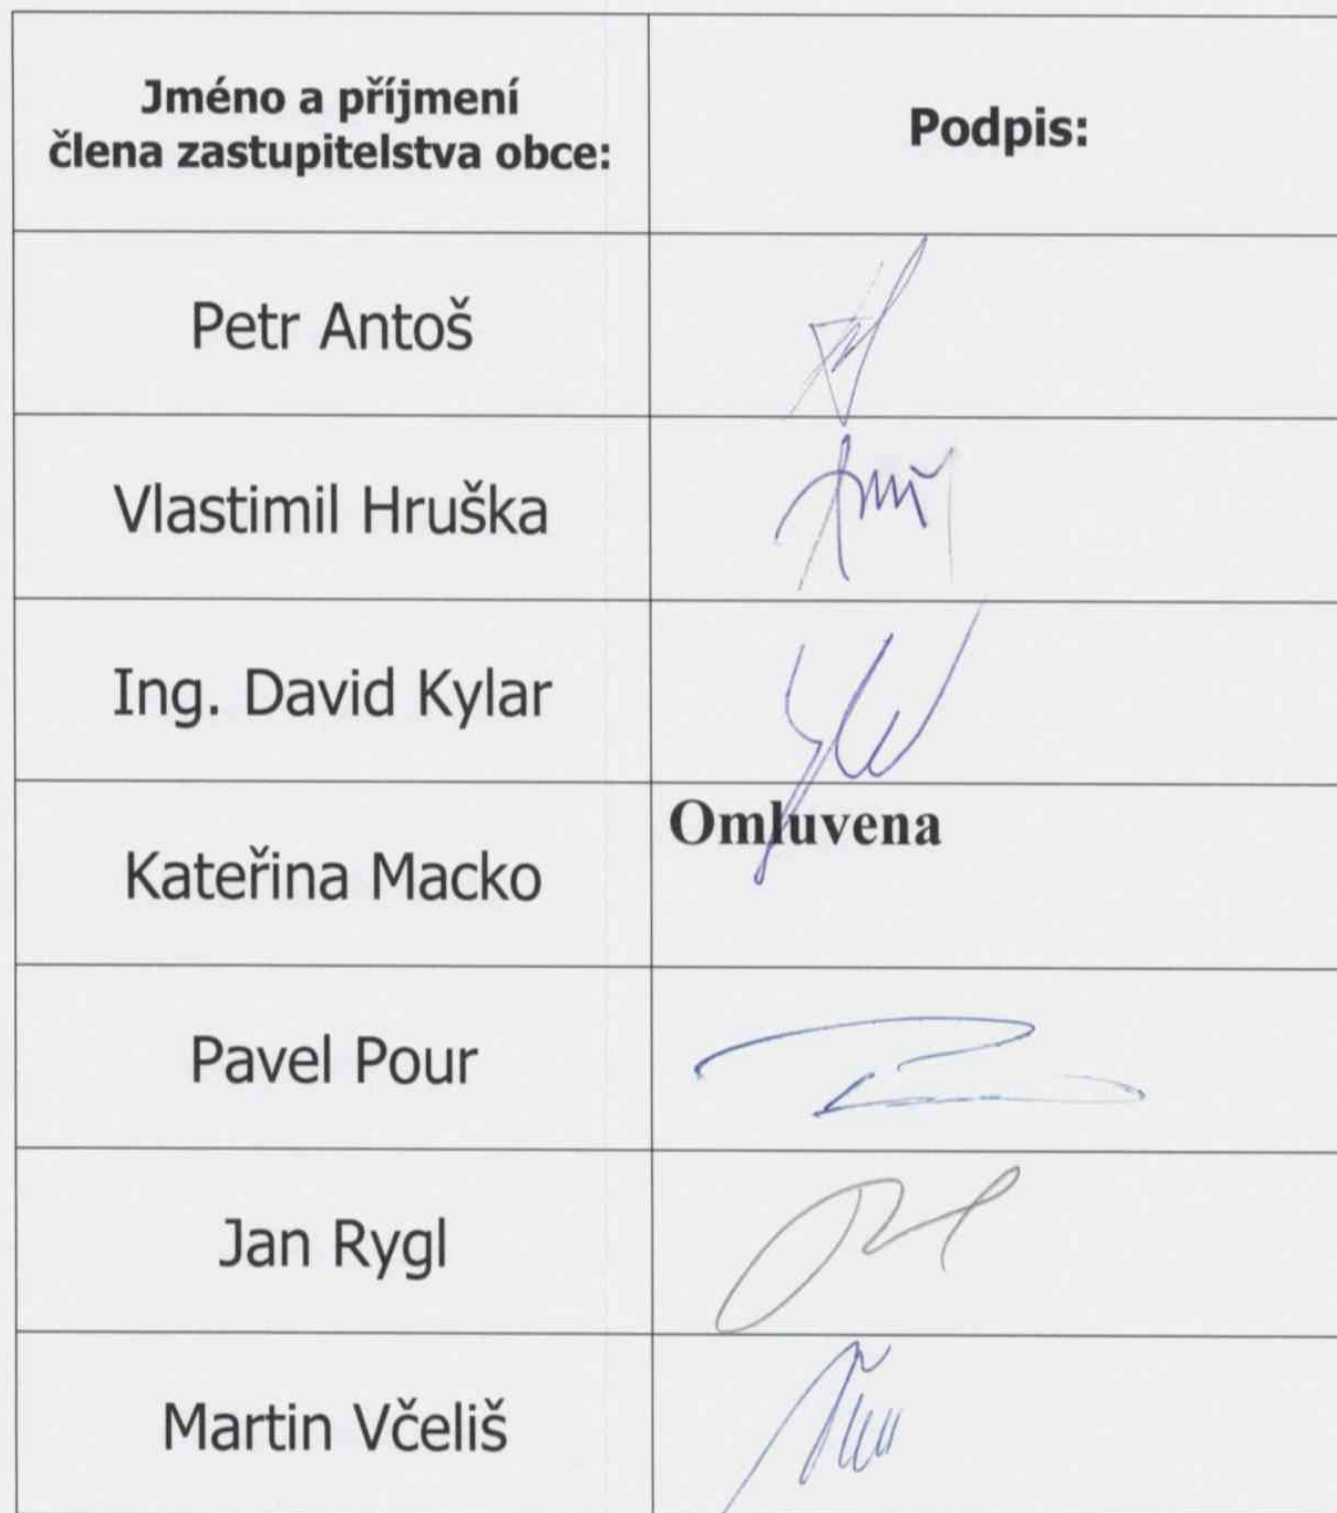 Jméno a příjmení
člena zastupitelstva obce:
Podpis:
Petr Antoš
Vlastimil Hruška
Ing. David Kylar
Kateřina Macko
Omluvena
Pavel Pour
Jan Rygl
Martin Včeliš